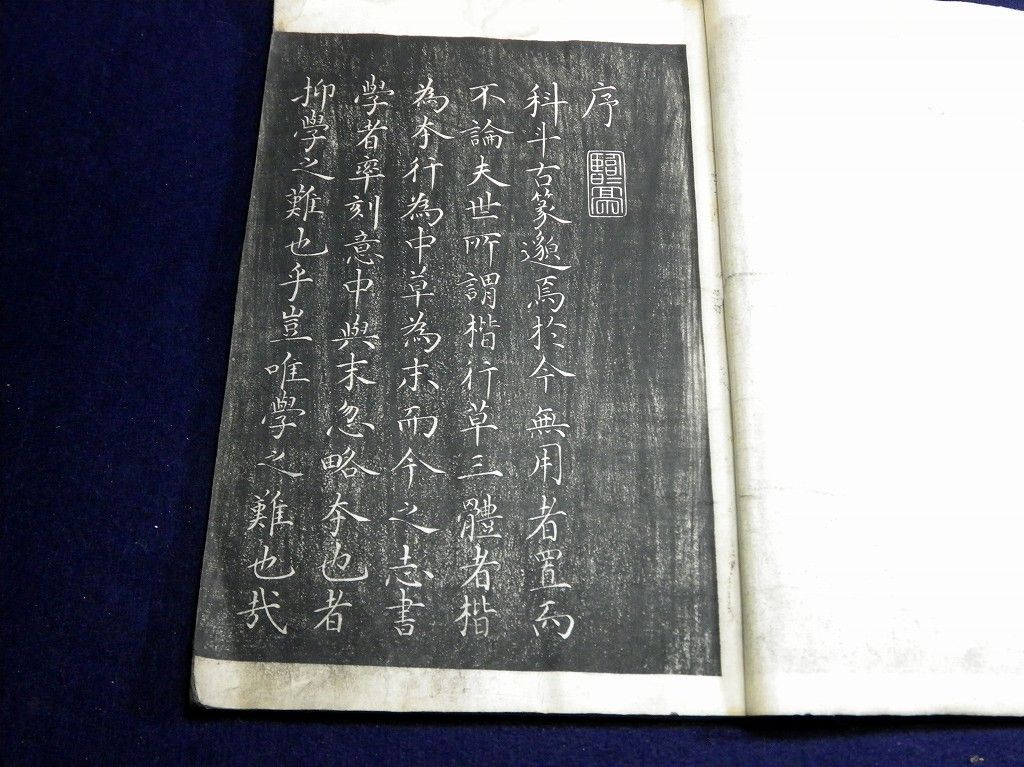 序
科斗古篆邈焉於今無用者置而
不論夫世所謂楷行草三體者楷
為夲行為中草為末而今之志書
學者率刻意中與末忽略夲也者
抑學之難也乎豈唯學之難也哉